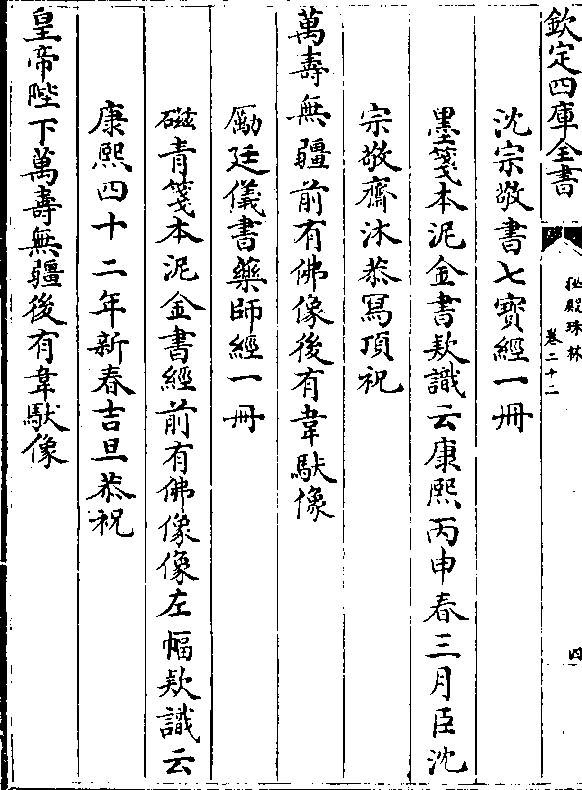 欽定四庫全書
秘殿珠林
卷二十二
四
沈宗敬書七寶經一冊
墨箋本泥金書欵識云康熙丙申春三月臣沈
宗敬齋沐恭寫頂祝
萬壽無疆前有佛像後有韋馱像
勵廷儀書藥師經一冊
磁青箋本泥金書經前有佛像像左幅欵識云
康熙四十二年新春吉旦恭祝
皇帝陛下萬壽無疆後有韋馱像